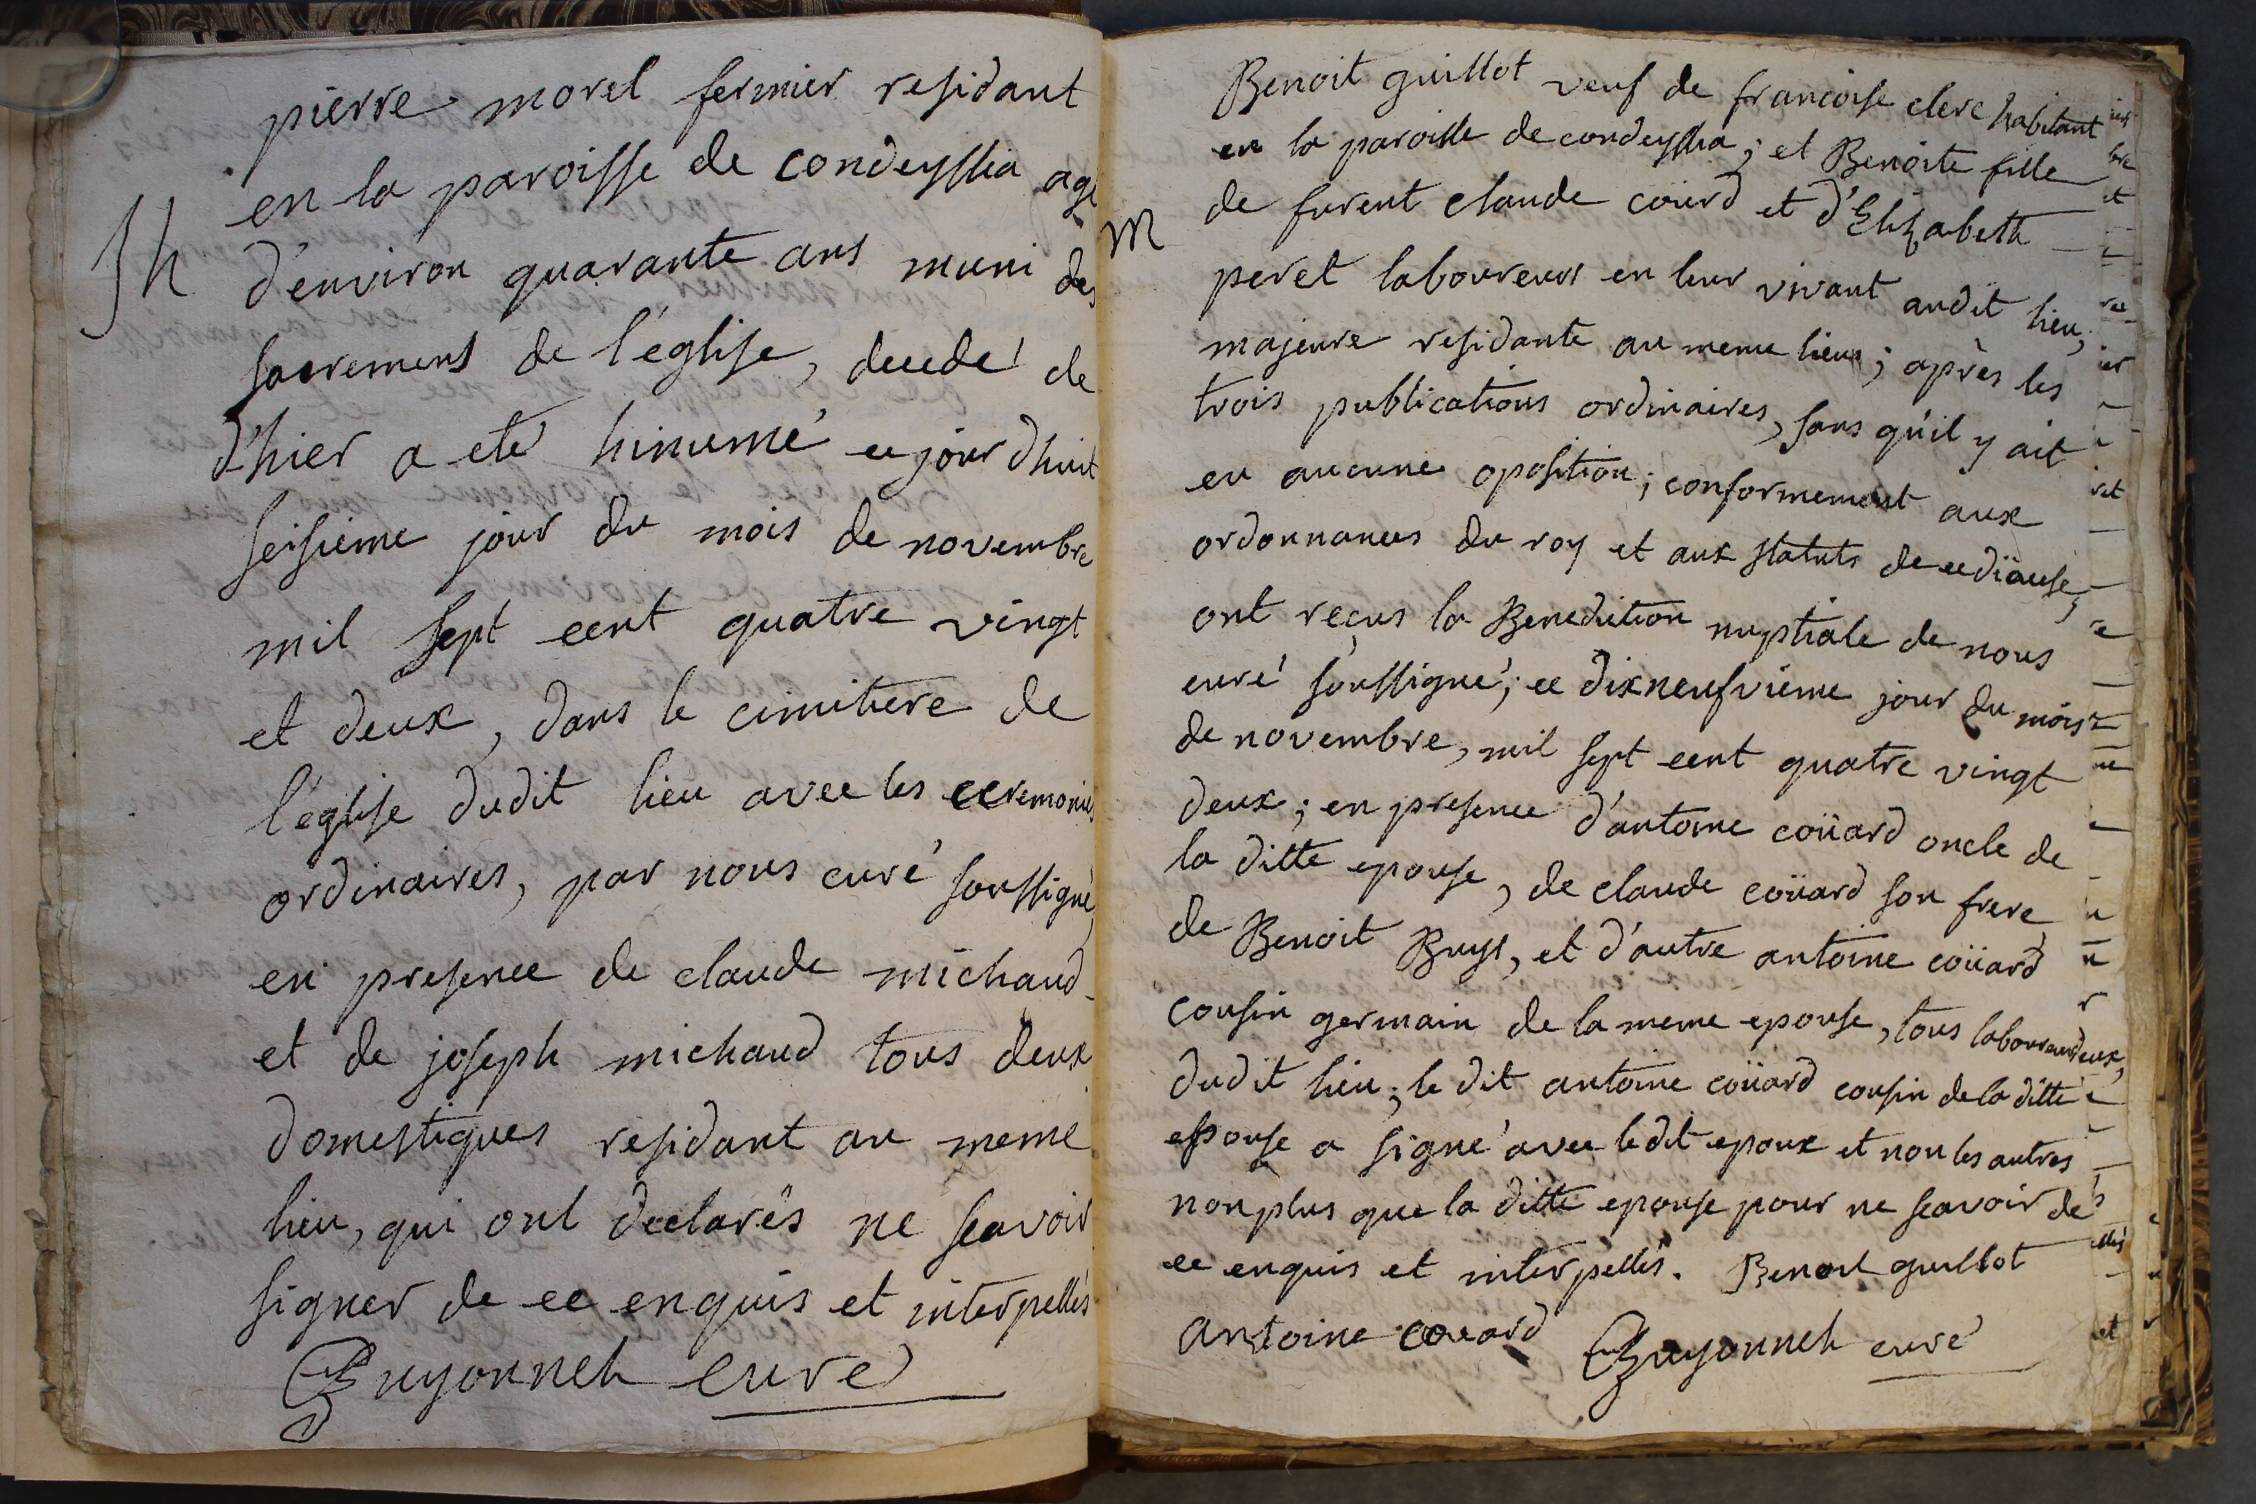 pierre morel fermier residant
en la paroisse de condeyssia agé
Sh
d'environ quarante ans muni des
sacremens de l'église, decedé de
d'hier a eté hinumé ce jourdhuit
seisieme jour du mois de novembre
mil sept cent quatre vingt
et deux, dans le cimitiere de
l'église dudit lieu avec les ceremonies
ordinaires, par nous curé soussigné,
en presence de claude michaud
et de joseph michaud tous deux
domestiques residant au meme
lieu, qui ont declarés ne scavoir
signer de ce enquis et interpellés
Guyonneh curé
Benoit guillot veuf de francoise clerc habitant
en la paroisse de condeyssia; et Benoite fille
M
de furent claude coüard et d'Elizabeth
peret laboureurs en leur vivant audit lieu,
majeure residante au meme lieu; après les
trois publications ordinaires, sans qu'il y ait
eu aucune oposition; conformement aux
ordonnances du roy et aux statuts de ce diocese,
ont reçus la Benediction nuptiale de nous
curé soussigné; ce dixneufvieme jour du mois
de novembre, mil sept cent quatre vingt
deux; en presence d'antoine coüard oncle de
la ditte epouse, de claude coüard son frere
de Benoit Buys, et d'autre antoine coüard
cousin germain de la meme epouse, tous laboureurs
dudit lieu; le dit antoine coüard cousin de la ditte
epouse a signé avec ledit epoux et non les autres
non plus que la ditte epouse pour ne scavoir de
ce enquis et interpellés. Benoit guillot
antoine couard Guyonneh curé